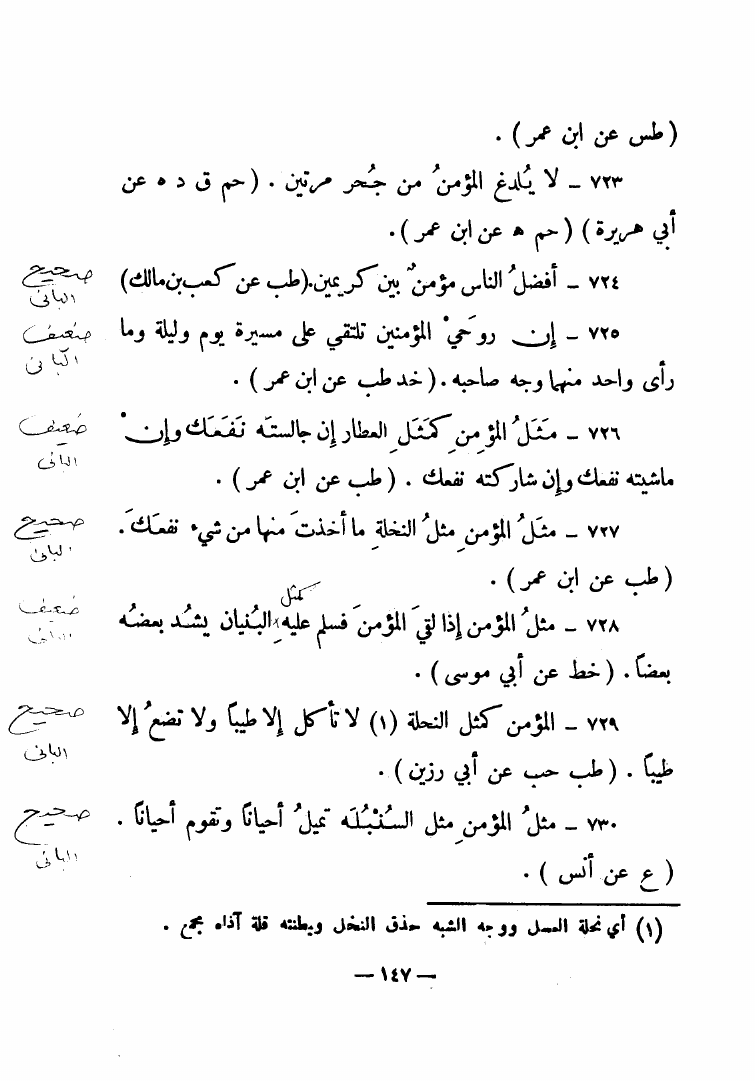 ( طس عن ابن عمر ) .
٧٢٣ ـ لا يُلدغ المؤمنُ من جُحر مرتين . ( حم ق د ه عن
أبي هريرة ) ( حم ه عن ابن عمر ) .
٧٢٤ ـ أفضلُ الناس مؤمنٌ بين كريمين.(طب عن كعب بن مالك)
صحيح
البانى
٧٢٥ ـ إن روحَيْ المؤمنين تلتقي على مسيرة يوم وليلة وما
ضعيف
البانى
رأى واحد منهما وجه صاحبه . ( خد طب عن ابن عمر ) .
٧٢٦ ـ مَثَلُ المؤمنِ كمَثَلِ العطارِ إن جالستَه نَفَعَك وإنْ
ضعيف
البانى
ماشيته نفعك وإن شاركته نفعك . ( طب عن ابن عمر ) .
٧٢٧ ـ مثَلُ المؤمنِ مثلُ النخلةِ ما أخذتَ منها من شيء نفعَكَ .
صحيح
البانى
( طب عن ابن عمر ) .
كمثل
٧٢٨ ـ مثلُ المؤمن إذا لقيَ المؤمنَ فسلم عليهِ البُنيان يشُد بعضُه
ضعيف
البانى
بعضاً . ( خط عن أبي موسى ) .
٧٢٩ ـ المؤمن كمثل النحلة (١) لا تأكل إلا طيباً ولا تضعُ إلا
صحيح
البانى
طيباً . ( طب حب عن أبي رزين ) .
٧٣٠ ـ مثلُ المؤمنِ مثل السُنْبُلَه تميلُ أحياناً وتقوم أحياناً .
صحيح
البانى
( ع عن أنس ) .
(١) أي نحلة العسل ووجه الشبه حذق النخل وبطنته قلة آذاه بجمع .
— ١٤٧ —